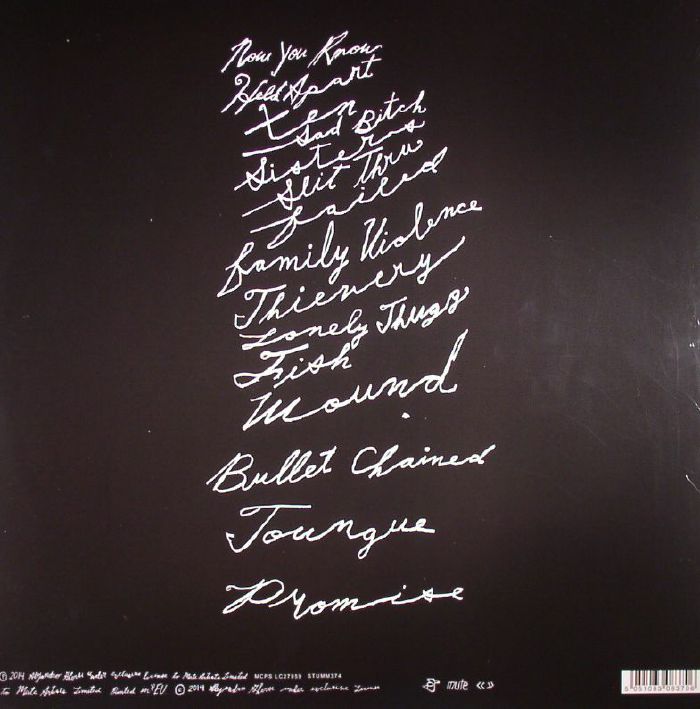 Now You Know
Held Apart
Xen
Sad Bitch
Sisters
Slit Thru
Failed
Family Violence
Thievery
Lonely Thugg
Fish
Wound
Bullet Chained
Toungue
Promise
℗ 2014 Alejandro Ghersi under exclusive license to Mute Artists Limited MCPS LC27959 STUMM374
to Mute Artists Limited Printed in EU © 2014 Alejandro Ghersi under exclusive License
mute